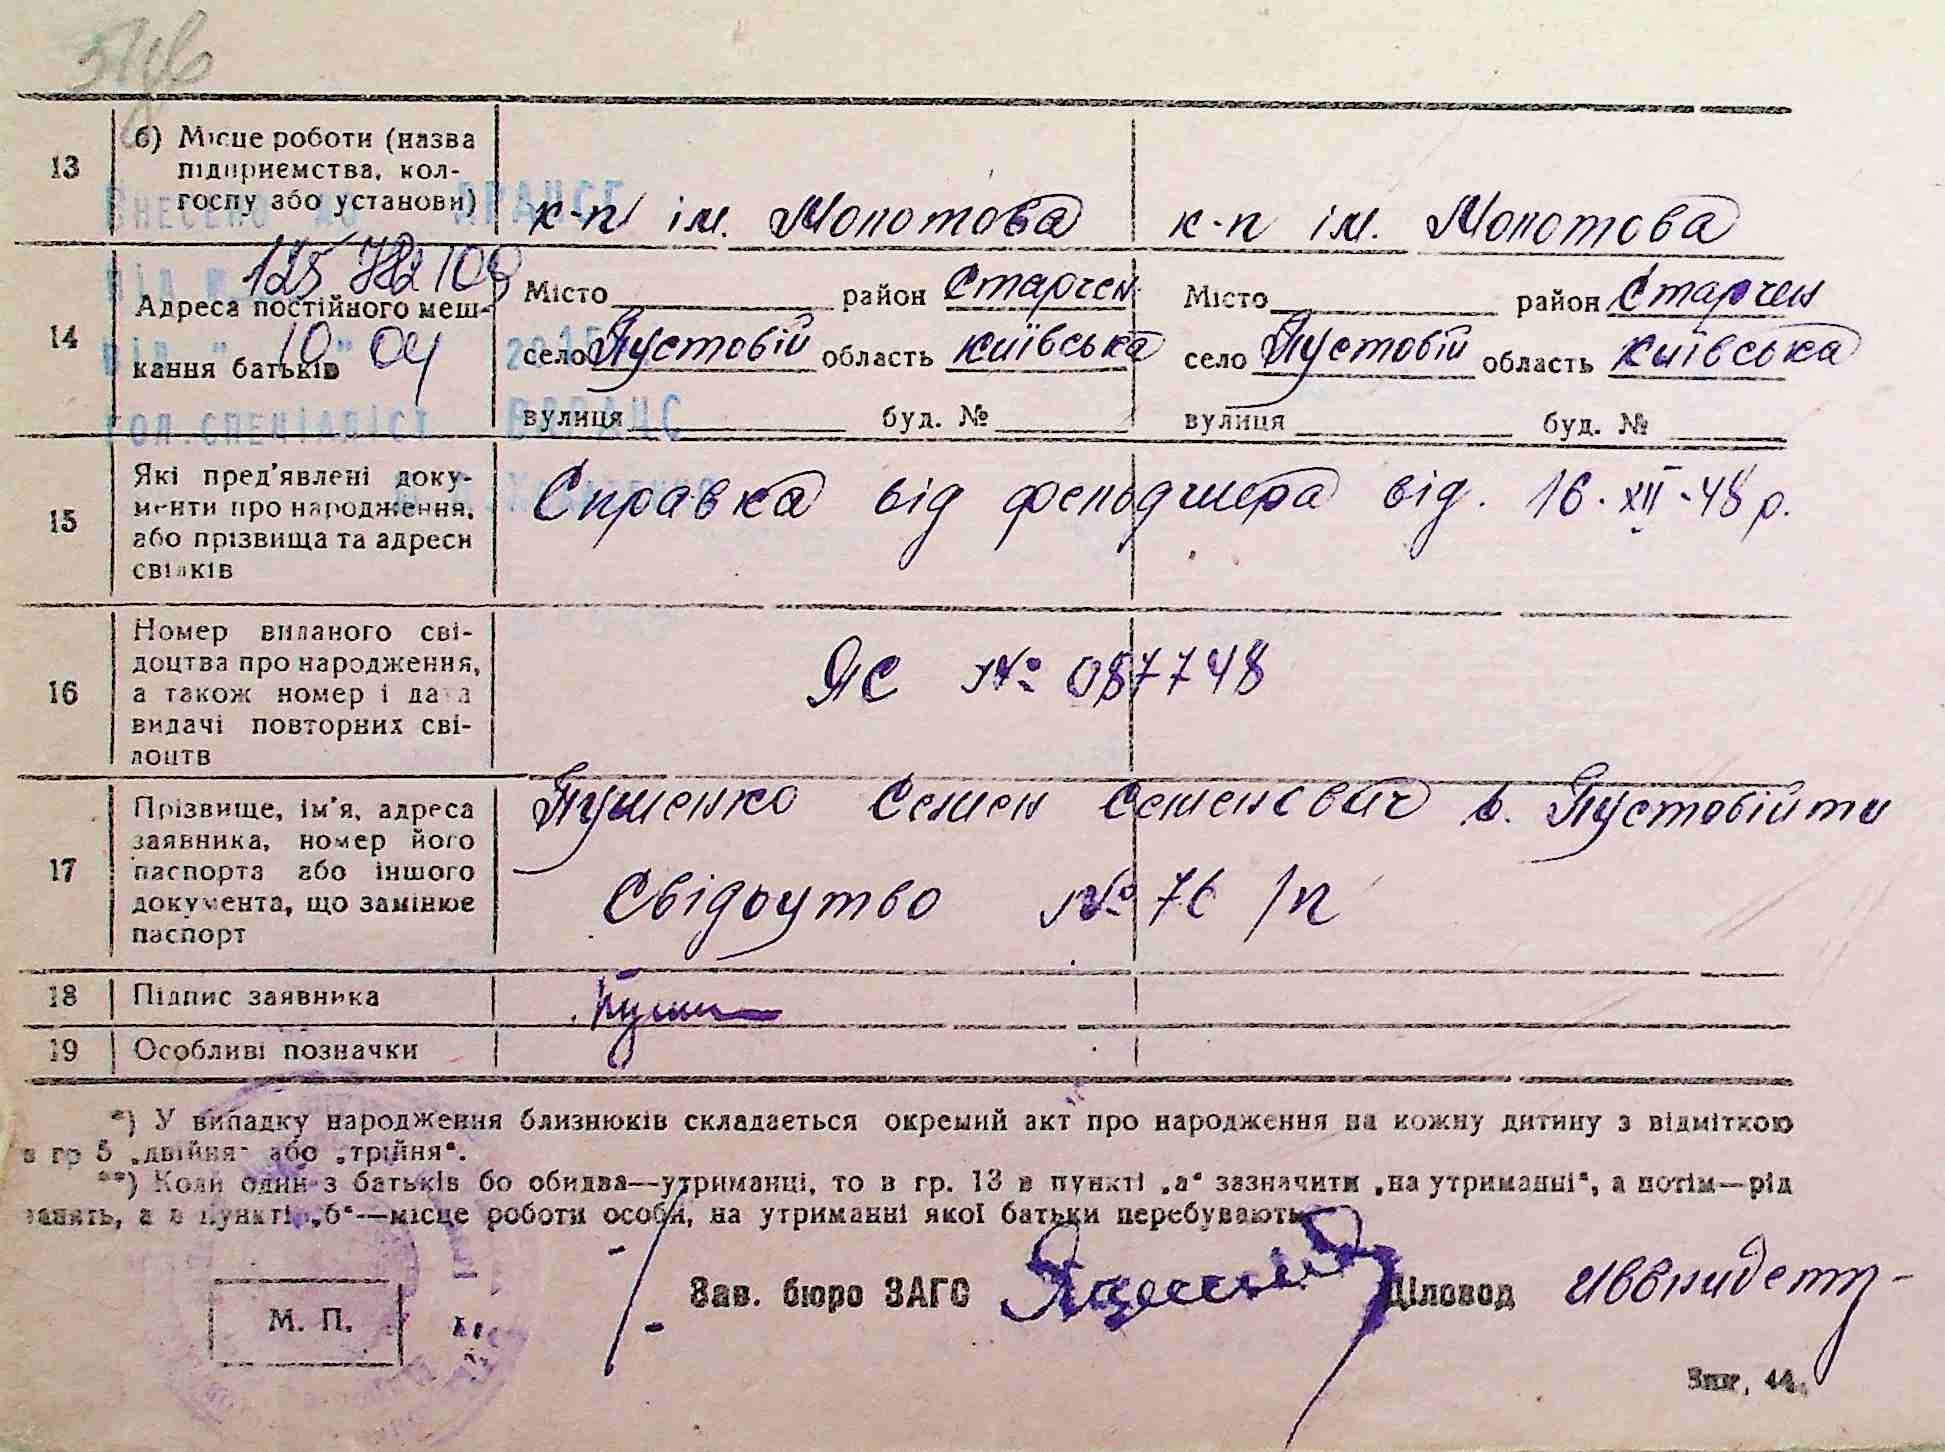 13 б) Місце роботи (назва
підприємства, кол-
госпу або установи)
к-п ім. Молотова к-п ім. Молотова
ВНЕСЕНО ДО ДРАЦСГ
125 09
14 Адреса постійного меш-
кання батьків
10 04
201
ГОЛ.СПЕЦІАЛІСТ
Місто район Старчен. Місто район Старчен
село Пустовій область київська село Пустовій область київська
вулиця буд. № вулиця буд. №
15 Які пред'явлені доку-
менти про народження,
або прізвища та адреси
свідків
Справка від фельдшера від. 16-XII-48 р.
16 Номер виданого сві-
доцтва про народження,
а також номер і дата
видачі повторних сві-
доцтв
ЯС № 087748
17 Прізвище, ім'я, адреса
заявника, номер його
паспорта або іншого
документа, що замінює
паспорт
Пушенко Семен Семенович в. Пустовійти
Свідоцтво № 76 /п
18 Підпис заявника
19 Особливі позначки
*) У випадку народження близнюків складається окремий акт про народження на кожну дитину з відміткою
в гр 5 „двійня“ або „трійня“.
**) Коли один з батьків бо обидва—утриманці, то в гр. 13 в пункті „а“ зазначити „на утриманні“, а потім—рід
занять, а в пункті „б“—місце роботи особи, на утриманні якої батьки перебувають
Зав. бюро ЗАГС Діловод
М. П.
Зак. 44.